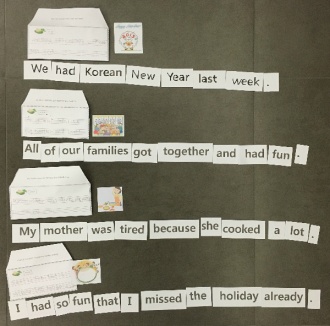 We had Korean New Year last week .
All of our families got together and had fun .
My mother was tired because she cooked a lot .
I had so fun that I missed the holiday already .